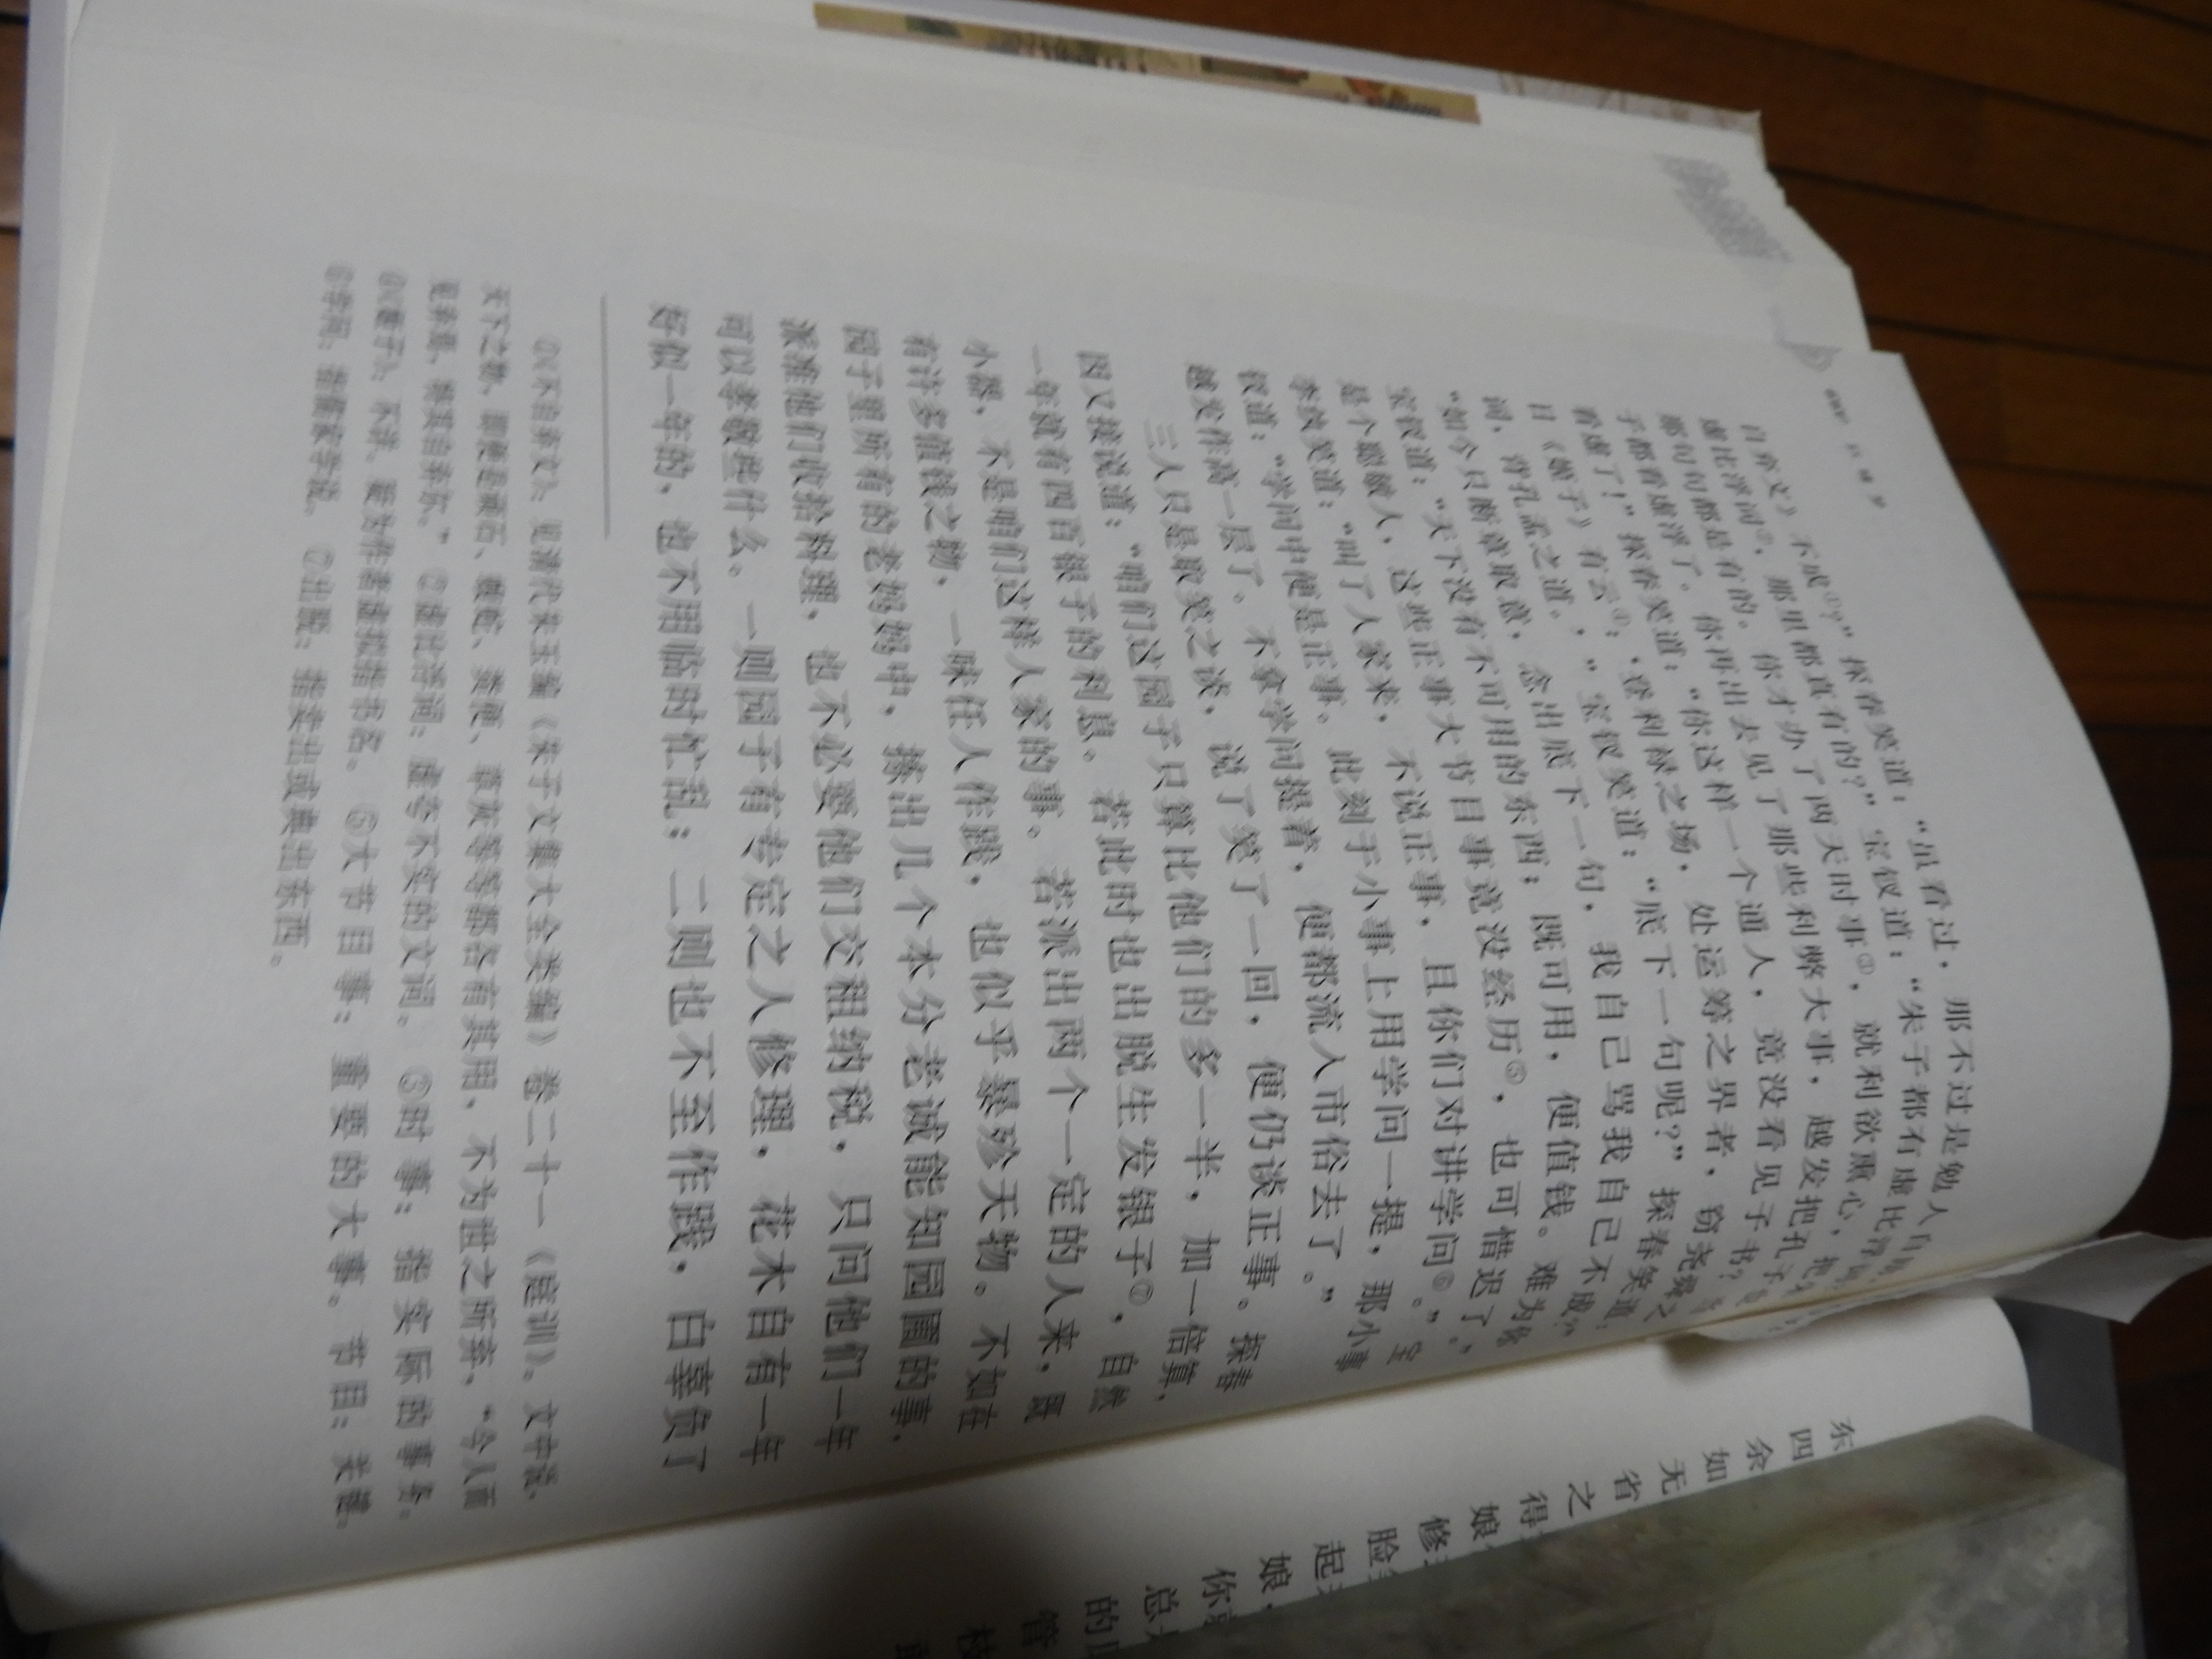 红楼梦
自弃文》不成①？”探春笑道：“虽看过，那不过是勉人自励，
虚比浮词②，那里都真有的？”宝钗道：“朱子都有虚比浮词？
那句句都是有的。你才办了两天时事③，就利欲熏心，把朱
子都看虚浮了。你再出去见了那些利弊大事，越发把孔子也
看虚了！”探春笑道：“你这样一个通人，竟没看见子书？当
日《姬子》有云④：‘登利禄之场，处运筹之界者，窃尧舜之
词，背孔孟之道。’”宝钗笑道：“底下一句呢？”探春笑道：
“如今只断章取意，念出底下一句，我自己骂我自己不成？”
宝钗道：“天下没有不可用的东西；既可用，便值钱。难为你
是个聪敏人，这些正事大节目事竟没经历⑤，也可惜迟了。”
李纨笑道：“叫了人家来，不说正事，且你们对讲学问⑥。”宝
钗道：“学问中便是正事。此刻于小事上用学问一提，那小事
越发作高一层了。不拿学问提着，便都流入市俗去了。”
三人只是取笑之谈，说了笑了一回，便仍谈正事。探春
因又接说道：“咱们这园子只算比他们的多一半，加一倍算，
一年就有四百银子的利息。若此时也出脱生发银子⑦，自然
小器，不是咱们这样人家的事。若派出两个一定的人来，既
有许多值钱之物，一味任人作践，也似乎暴殄天物。不如在
园子里所有的老妈妈中，拣出几个本分老诚能知园圃的事，
派准他们收拾料理，也不必要他们交租纳税，只问他们一年
可以孝敬些什么。一则园子有专定之人修理，花木自有一年
好似一年的，也不用临时忙乱；二则也不至作践，白辜负了
①《不自弃文》：见清代朱玉编《朱子文集大全类编》卷二十一《庭训》。文中说，
天下之物，即使是顽石、蝮蛇、粪便、草灰等等都各有其用，不为世之所弃，“今人而
见弃焉，特其自弃尔。” ②虚比浮词：虚夸不实的文词。 ③时事：指实际的事务。
④《姬子》：不详。疑为作者虚拟书名。 ⑤大节目事：重要的大事。节目：关键。
⑥学问：指儒家学说。 ⑦出脱：指卖出或典出东西。
东
四
余
如
无
省
之
得
娘
修
脸
起
娘
你
总
的
管